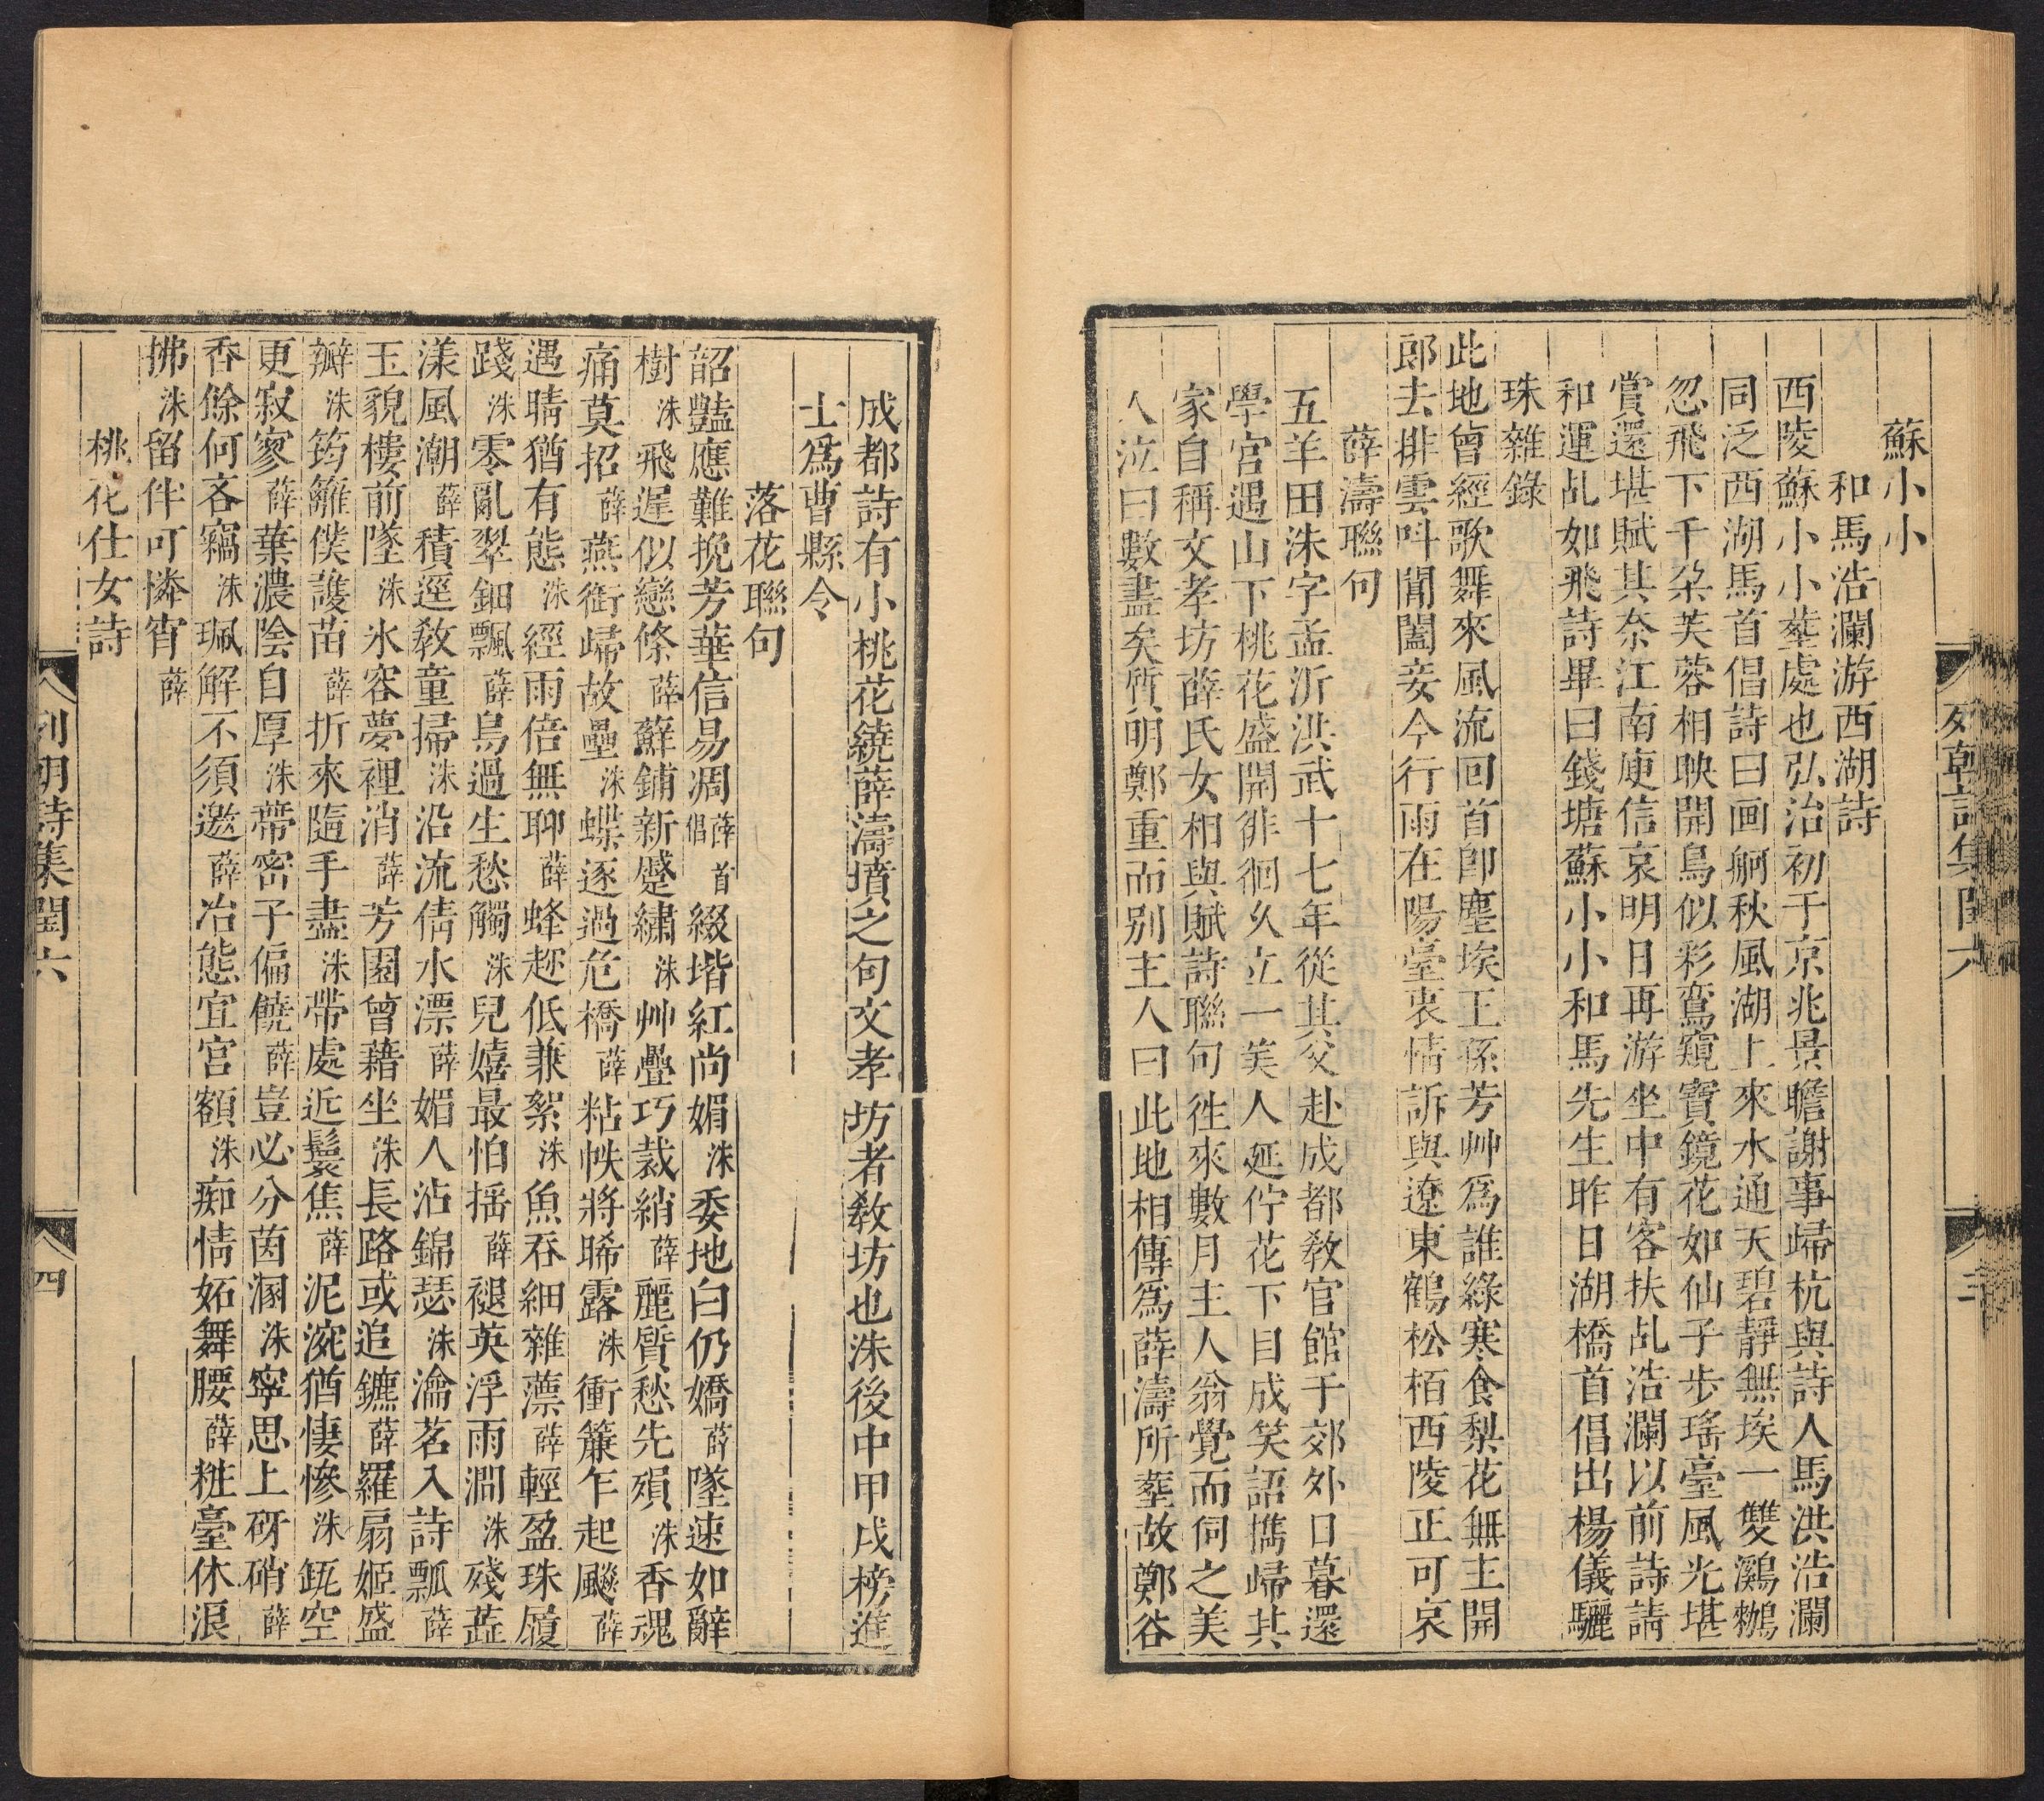 列朝詩集閏六
三
蘇小小
和馬浩瀾游西湖詩
西陵蘇小小塟處也弘治初于京兆景瞻謝事歸杭與詩人馬洪浩瀾
同泛西湖馬首倡詩曰画舸秋風湖上來水通天碧靜無埃一雙鸂鶒
忽飛下千朶芙蓉相映開鳥似彩鸞窺寶鏡花如仙子步瑤臺風光堪
賞還堪賦其奈江南庾信哀明日再游坐中有客扶乩浩瀾以前詩請
和運乩如飛詩畢曰錢塘蘇小小和馬先生昨日湖橋首倡出楊儀驪
珠雜錄
此地曾經歌舞來風流回首卽塵埃王孫芳艸爲誰綠寒食梨花無主開
郎去排雲呌閶闔妾今行雨在陽臺衷情訴與遼東鶴松栢西陵正可哀
薛濤聯句
五羊田洙字孟沂洪武十七年從其父赴成都敎官館于郊外日暮還
學宮遇山下桃花盛開徘徊久立一美人延佇花下目成笑語攜歸其
家自稱文孝坊薛氏女相與賦詩聯句徃來數月主人翁覺而伺之美
人泣曰數盡矣質明鄭重而別主人曰此地相傳爲薛濤所塟故鄭谷
成都詩有小桃花繞薛濤墳之句文孝坊者敎坊也洙後中甲戌榜進
士爲曹縣令
落花聯句
韶豔應難挽芳華信易凋薛首倡綴堦紅尚媚洙委地白仍嬌薛墜速如辭
樹洙飛遲似戀條薛蘚鋪新蹙繡洙艸疊巧裁綃薛麗質愁先殞洙香魂
痛莫招薛燕銜歸故壘洙蝶逐過危橋薛粘帙將晞露洙衝簾乍起飈薛
遇晴猶有態洙經雨倍無聊薛蜂趂低兼絮洙魚吞細雜薸薛輕盈珠履
踐洙零亂翠鈿飄薛鳥過生愁觸洙兒嬉最怕搖薛褪英浮雨澗洙殘蕋
漾風潮薛積逕敎童掃洙沿流倩水漂薛媚人沾錦瑟洙瀹茗入詩瓢薛
玉貌樓前墜洙氷容夢裡消薛芳園曾藉坐洙長路或追鑣薛羅扇姬盛
瓣洙筠籬僕護苗薛折來隨手盡洙帶處近鬟焦薛泥涴猶悽慘洙缾空
更寂寥薛葉濃陰自厚洙蒂密子偏饒薛豈必分茵溷洙寧思上砑硝薛
香餘何吝竊洙珮解不須邀薛冶態宜宮額洙痴情妬舞腰薛粧臺休浪
拂洙留伴可憐宵薛
桃花仕女詩
列朝詩集閏六
四